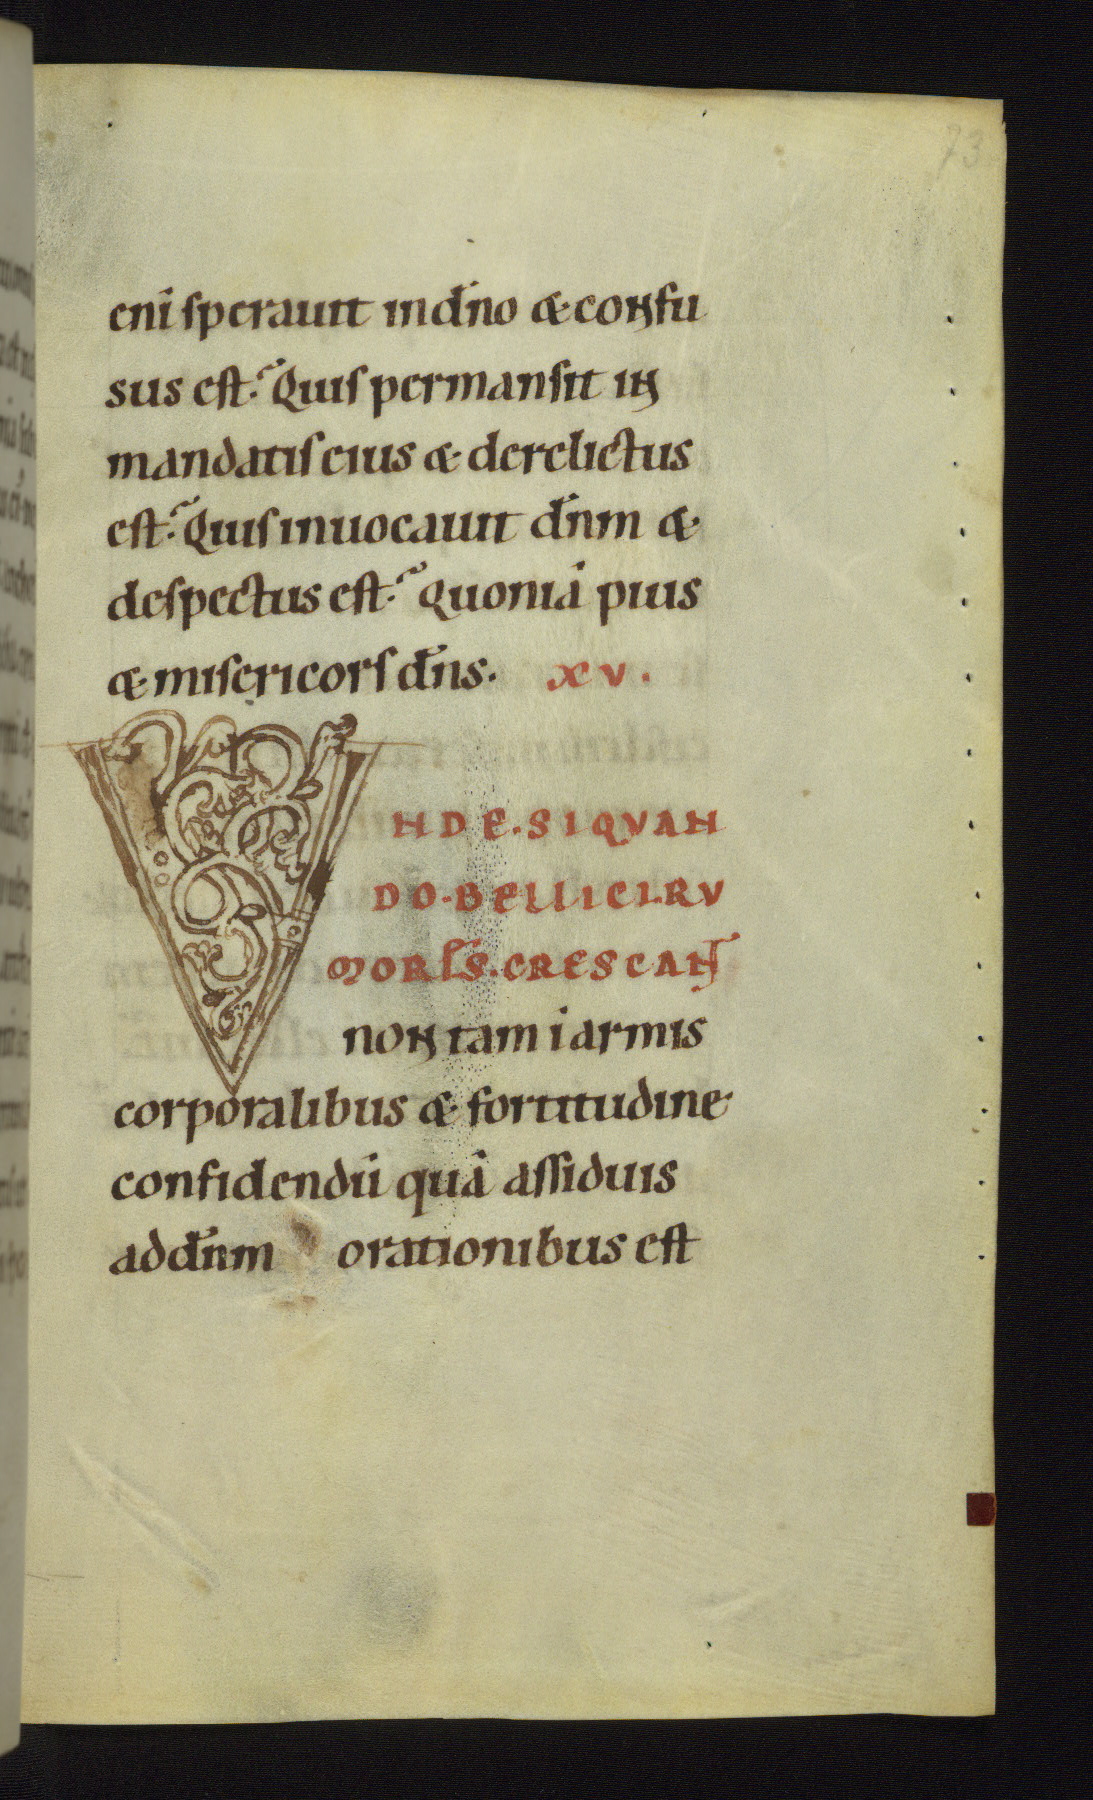 73
eni̅ sperauit in dn̅o & confu
sus est? Quis permansit in
mandatis eius & derelictus
est? Quis inuocauit dn̅m &
despectus est? Quonia̅ pius
& misericors dn̅s. xv.
VNDE. SI QVAN
DO. BELLICI. RV
MORIS. CRESCANT
non tam i armis
corporalibus & fortitudine
confidendu̅ qua̅ assiduis
ad dn̅m orationibus est